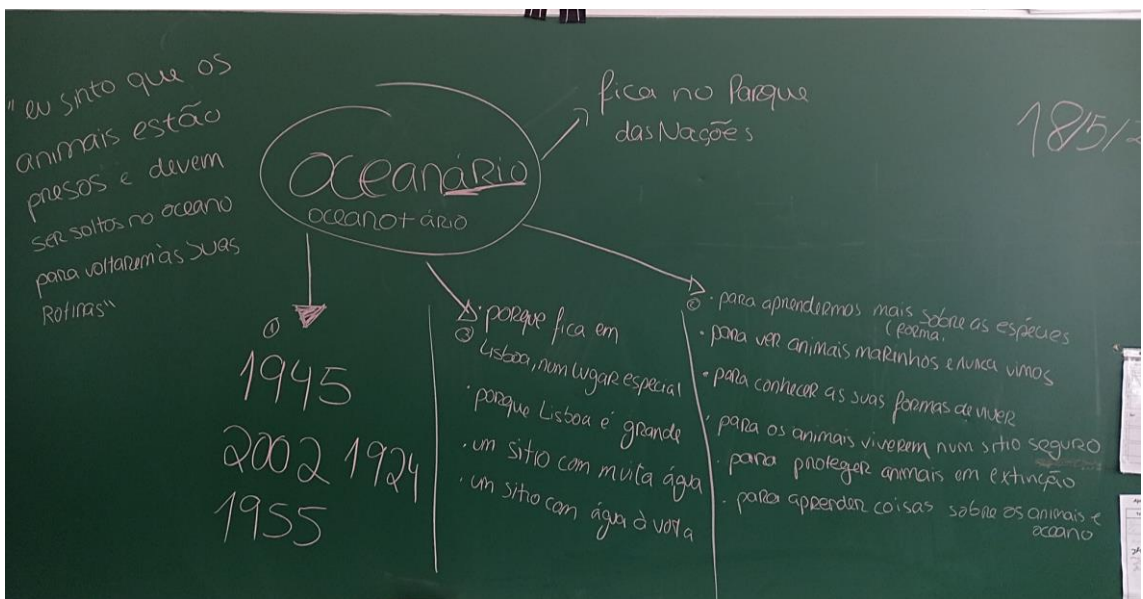 "eu sinto que os
animais estão
presos e devem
ser soltos no oceano
para voltarem às suas
Rotinas"
oceanário
oceano + ário
fica no Parque
das Nações
18/5/2
①
1945
2002 1924
1955
② · porque fica em
Lisboa, num lugar especial
· porque Lisboa é grande
· um sitio com muita água
· um sitio com água à volta
· para aprendermos mais sobre as espécies
(forma.
· para ver animais marinhos e nunca vimos
· para conhecer as suas formas de viver
· para os animais viverem num sitio seguro
· para proteger animais em extinção
· para aprender coisas sobre os animais e
oceano